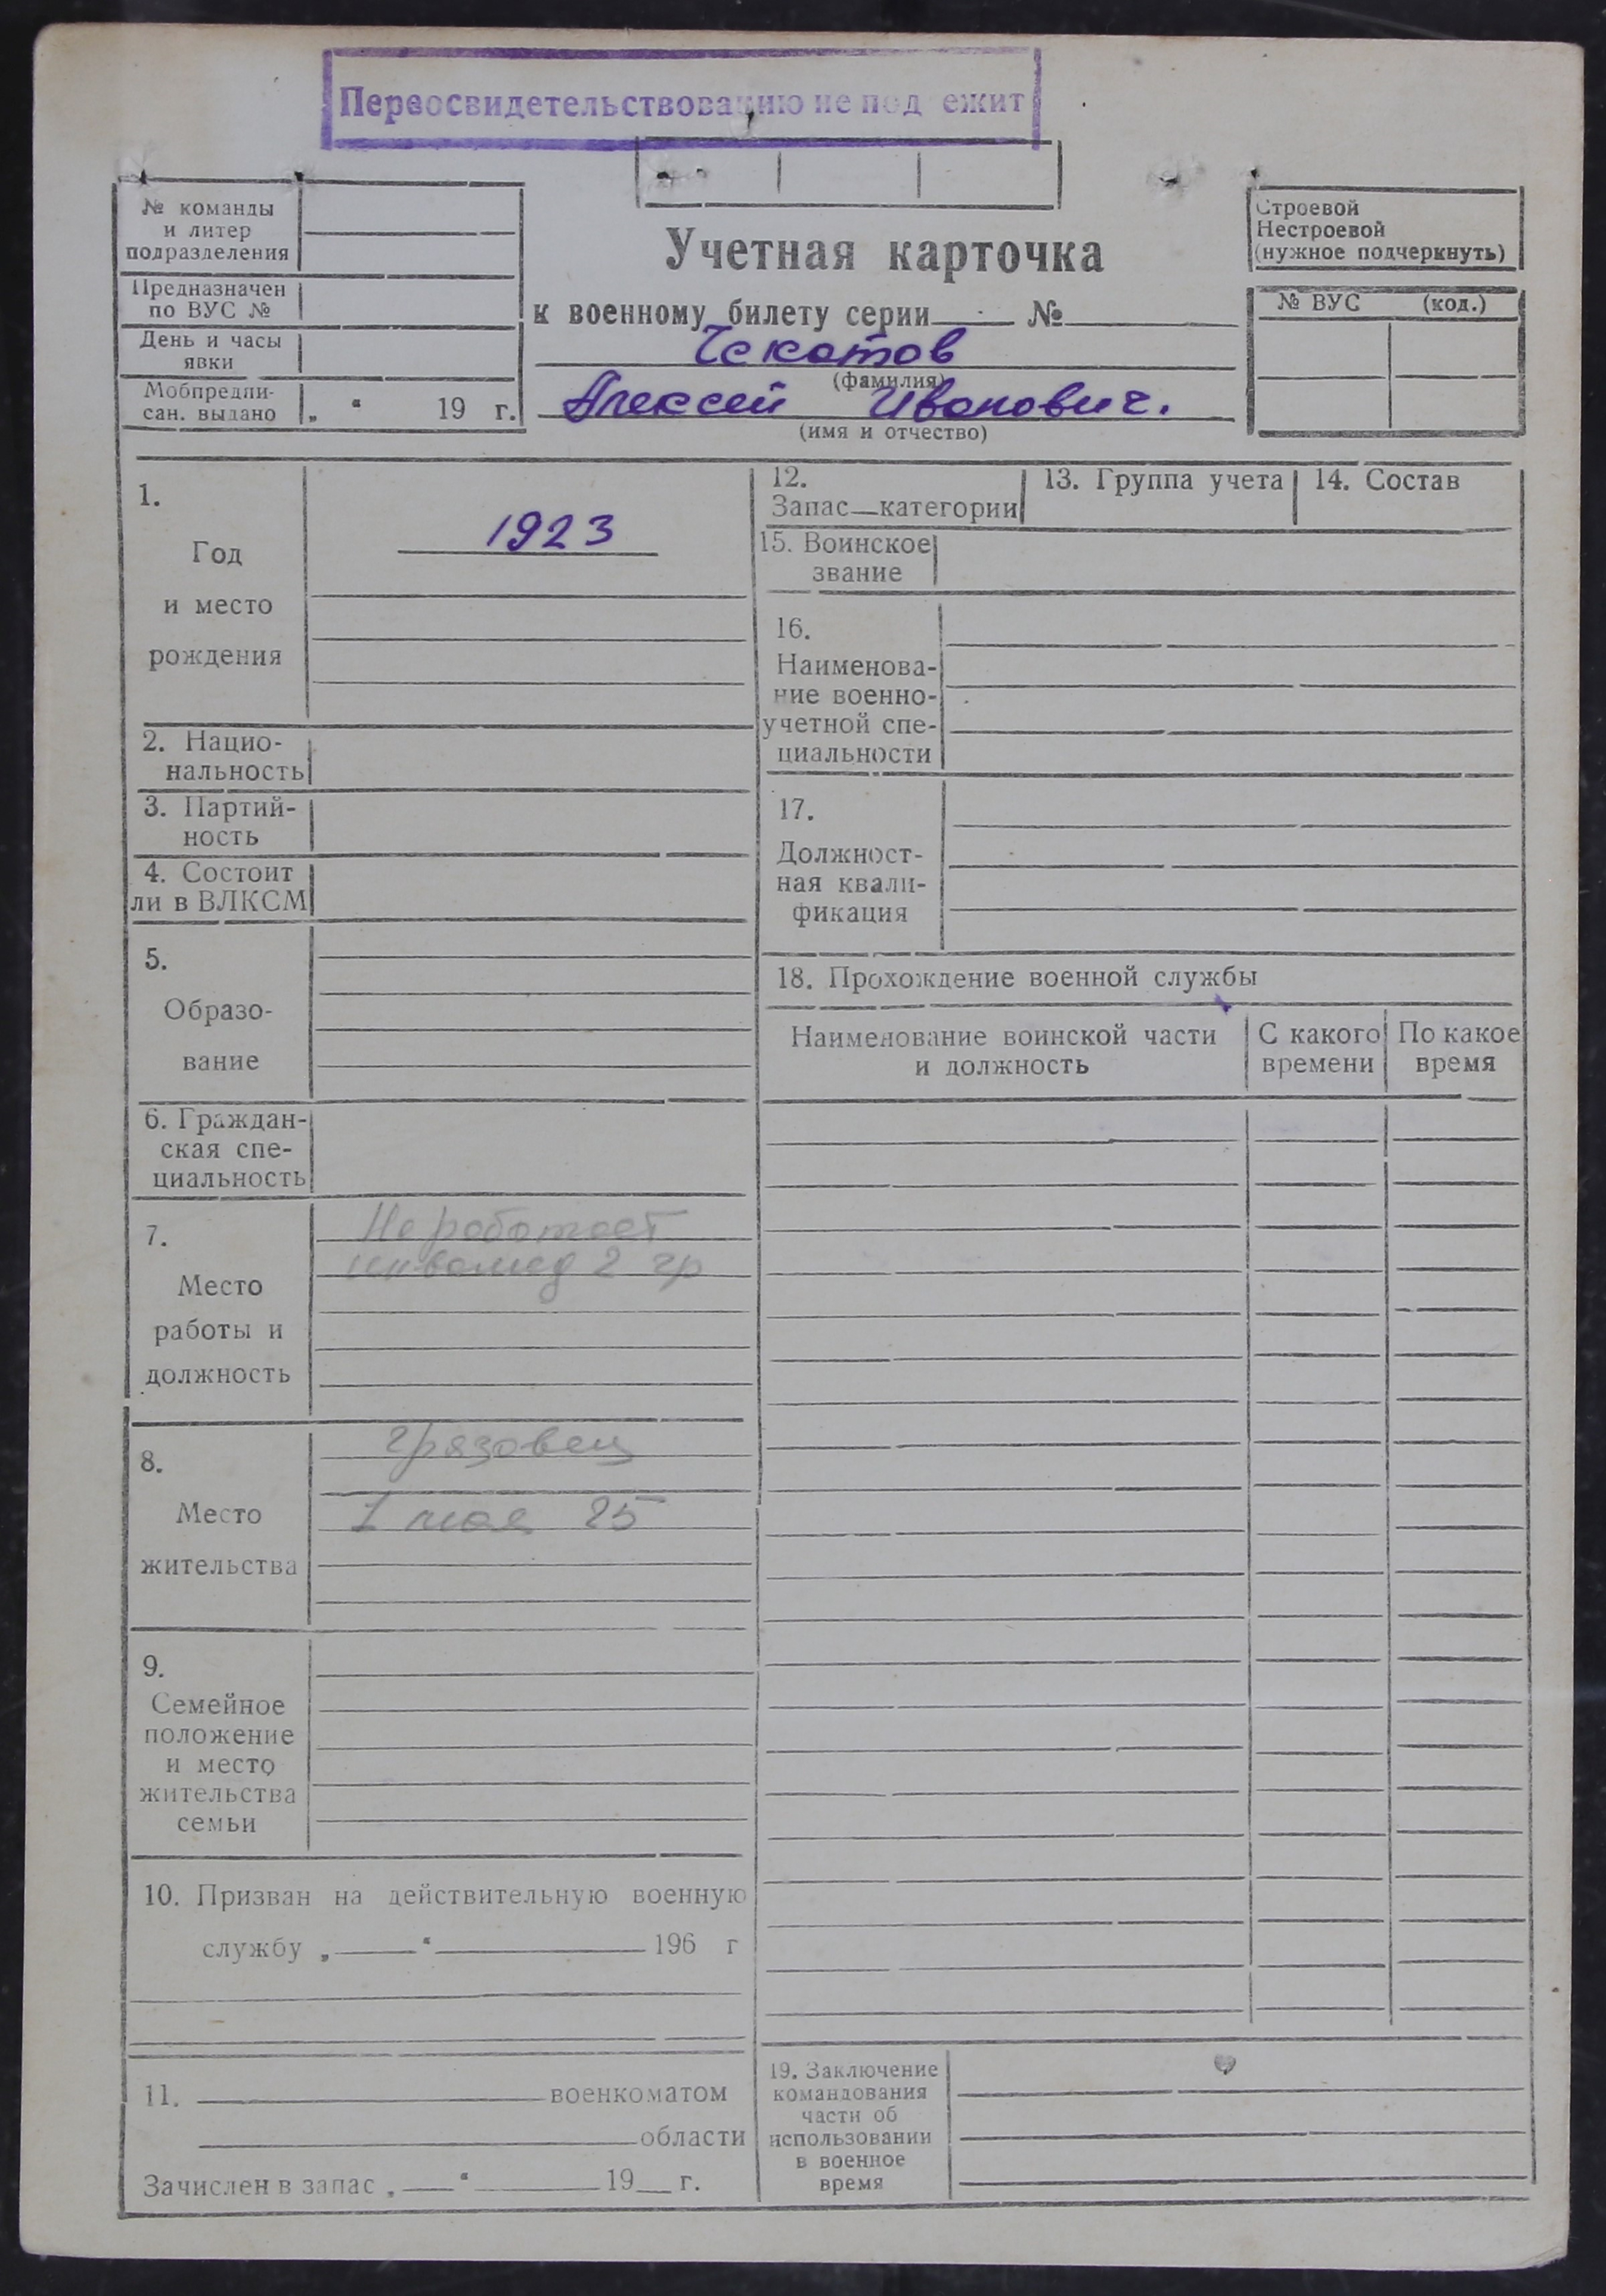 Переосвидетельствованию не подлежит
№ команды
и литер
подразделения
Предназначен
по ВУС №
День и часы
явки
Мобпредпи-
сан. выдано „ “ 19 г.
Учетная карточка
к военному билету серии №
Чекатов
(фамилия)
Алексей Иванович.
(имя и отчество)
Строевой
Нестроевой
(нужное подчеркнуть)
№ ВУС (код.)
1.
Год
и место
рождения
1923
2. Нацио-
нальность
3. Партий-
ность
4. Состоит
ли в ВЛКСМ
5.
Образо-
вание
6. Граждан-
ская спе-
циальность
7.
Место
работы и
должность
Не работает
инвалид 2 гр
8.
Место
жительства
Грязовец
1 мая 25
9.
Семейное
положение
и место
жительства
семьи
10. Призван на действительную военную
службу „ “ 196 г
11. военкоматом
области
Зачислен в запас „ “ 19 г.
12.
Запас—категории
13. Группа учета
14. Состав
15. Воинское
звание
16.
Наименова-
ние военно-
учетной спе-
циальности
17.
Должност-
ная квали-
фикация
18. Прохождение военной службы
Наименование воинской части
и должность
С какого
времени
По какое
время
19. Заключение
командования
части об
использовании
в военное
время